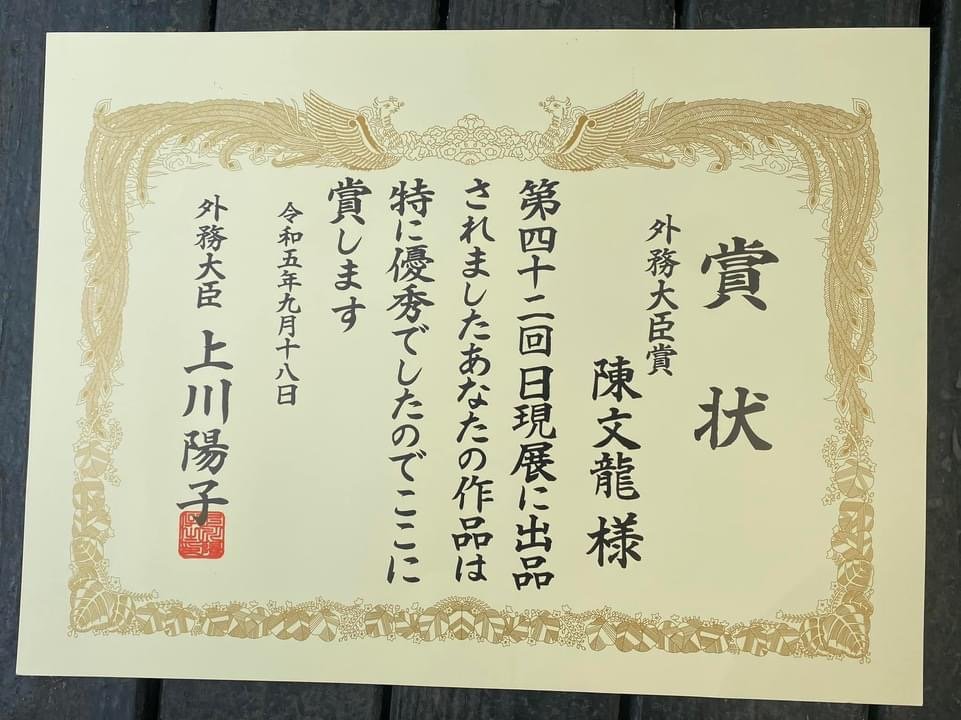 賞状
外務大臣賞
陳文龍様
第四十二回日現展に出品
されましたあなたの作品は
特に優秀でしたのでここに
賞します
令和五年九月十八日
外務大臣 上川陽子